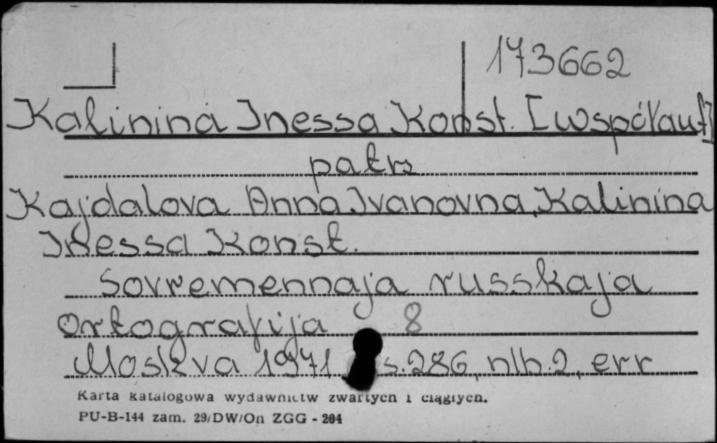 173662
Kalinina Inessa Konst. [współaut]
patrz
Kajdalova Anna Ivanovna, Kalinina
Inessa Konst.
Sovremennaja russkaja
ortografija 8
Moskva 1971, s. 286, nlb. 2, err
Karta katalogowa wydawnictw zwartych i ciągłych.
PU-B-144 zam. 29/DW/On ZGG - 204